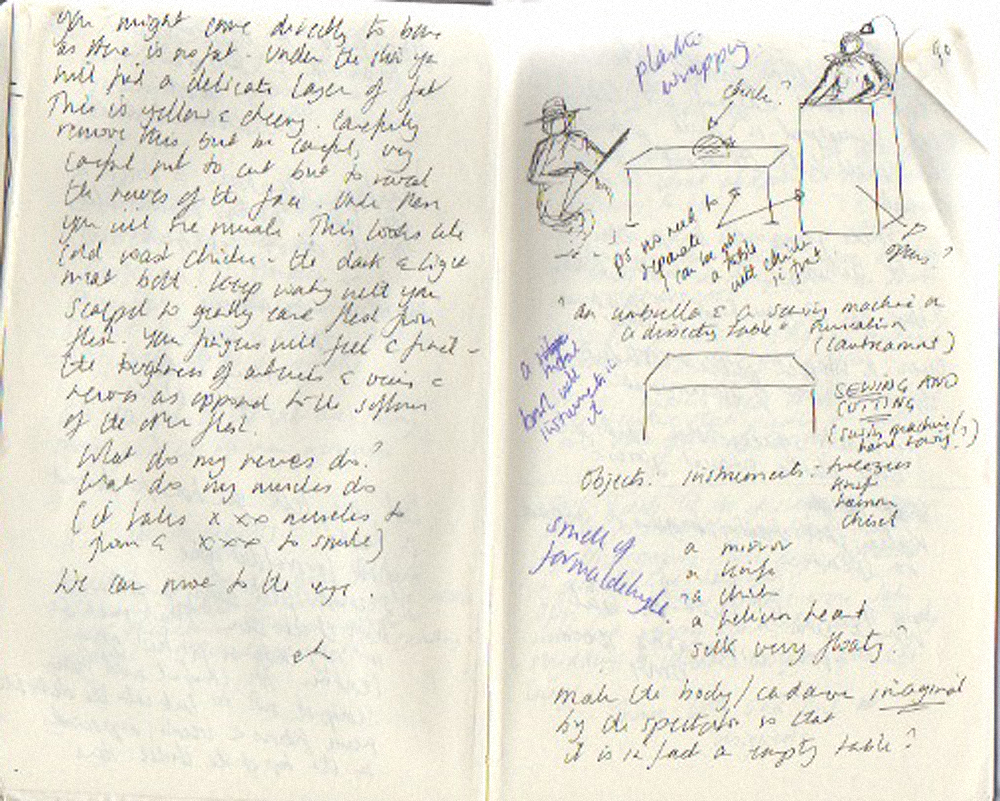 you might come directly to bone
as there is no fat. Under the skin you
will find a delicate layer of fat
This is yellow & cheesy. Carefully
remove this, but be careful, very
careful not to cut but to reveal
the nerves of the face. Under them
you will see muscle. This looks like
cold roast chicken - the dark & light
meat both. Keep working with your
scalpel to gently carve flesh from
flesh. Your fingers will feel
the toughness of arteries & veins &
nerves as opposed to the softness
of the other flesh.
What do my nerves do?
What do my muscles do
(it takes x xx muscles to
frown & xxx to smile)
We can move to the eye.
etc
plastic
wrapping
90
chicken?
ps no need to
separate
can be
a table
with chicken
in front
"an umbrella & a sewing machine on
a dissecting table"
(Lautreamont)
a
metal
bowl with
instruments in
it
SEWING AND
CUTTING
(sewing machine(?)
hand sewing?)
Objects: instruments - tweezers
knife
chisel
smell of
formaldehyde.
a mirror
a knife
a chicken
a helium heart
silk very floaty?
make the body/cadaver imagined
by the spectator so that
it is in fact a empty table?